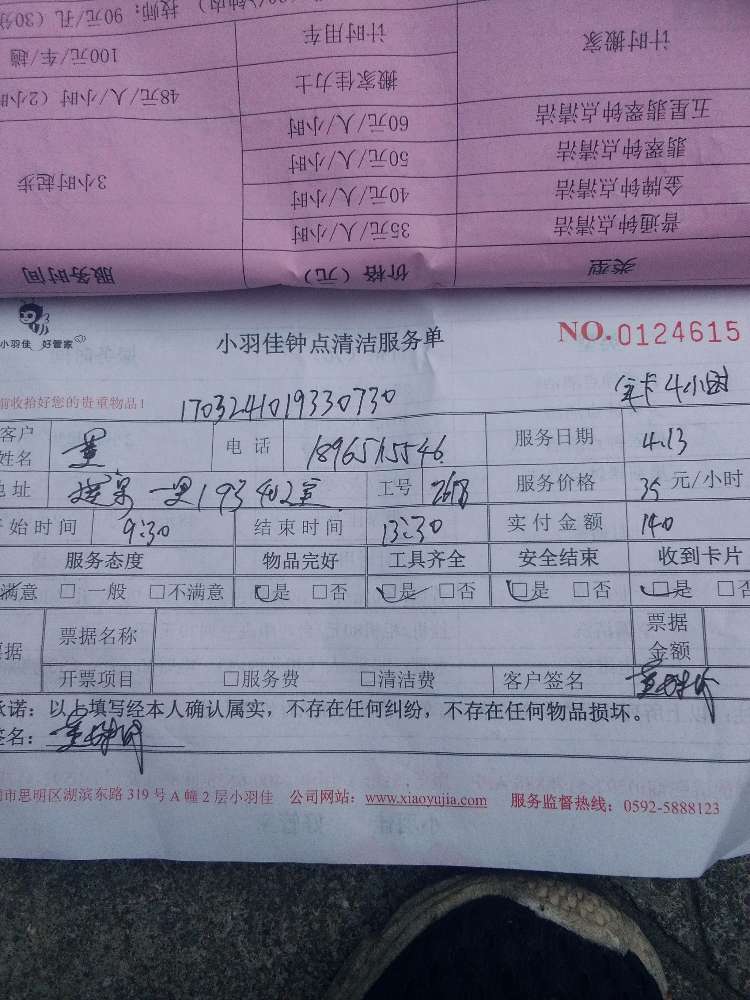 技师: 90元/孔 (30分
计时搬家 计时用车 100元/车/趟
搬家佳力士 48元/人/小时 (2小时
五星翡翠钟点清洁 60元/人/小时
翡翠钟点清洁 50元/人/小时
金牌钟点清洁 40元/人/小时 3小时起步
普通钟点清洁 35元/人/小时
类型 价格(元) 服务时间
小羽佳 好管家
小羽佳钟点清洁服务单
NO.0124615
前收拾好您的贵重物品!
1703241019330730
年卡4小时
客户姓名 董 电话 服务日期 4.13
地址 一里193 402室 工号 2658 服务价格 35 元/小时
开始时间 9:30 结束时间 13:30 实付金额 140
服务态度 物品完好 工具齐全 安全结束 收到卡片
满意 □ 一般 □不满意 □是 □否 □是 □否 □是 □否 □是 □否
票据 票据名称 票据金额
开票项目 □服务费 □清洁费 客户签名
承诺:以上填写经本人确认属实,不存在任何纠纷,不存在任何物品损坏。
签名:
市思明区湖滨东路 319 号 A 幢 2 层小羽佳 公司网站: www.xiaoyujia.com 服务监督热线: 0592-5888123